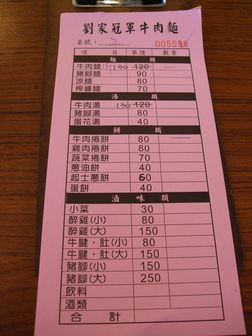 劉家冠軍牛肉麵
桌號: 2 005598
項目 單價 數量
麵類
牛肉麵 130 120
豬腳麵 90
涼麵 60
榨醬麵 70
湯類
牛肉湯 130 120
豬腳湯 80
蛋花湯 40
餅類
牛肉捲餅 80
雞肉捲餅 80
蔬菜捲餅 70
蔥油餅 40
起士蔥餅 60
蛋餅 40
滷味類
小菜 30
醉雞(小) 80
醉雞(大) 150
牛腱·肚(小) 80
牛腱·肚(大) 150
豬腳(小) 150
豬腳(大) 250
飲料
酒類
合計